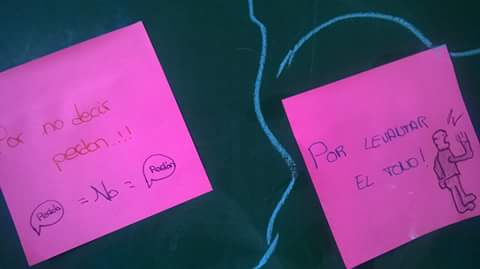 Por no decir
perdón..!!
Perdón = No = Perdón
POR LEVANTAR
EL TONO!